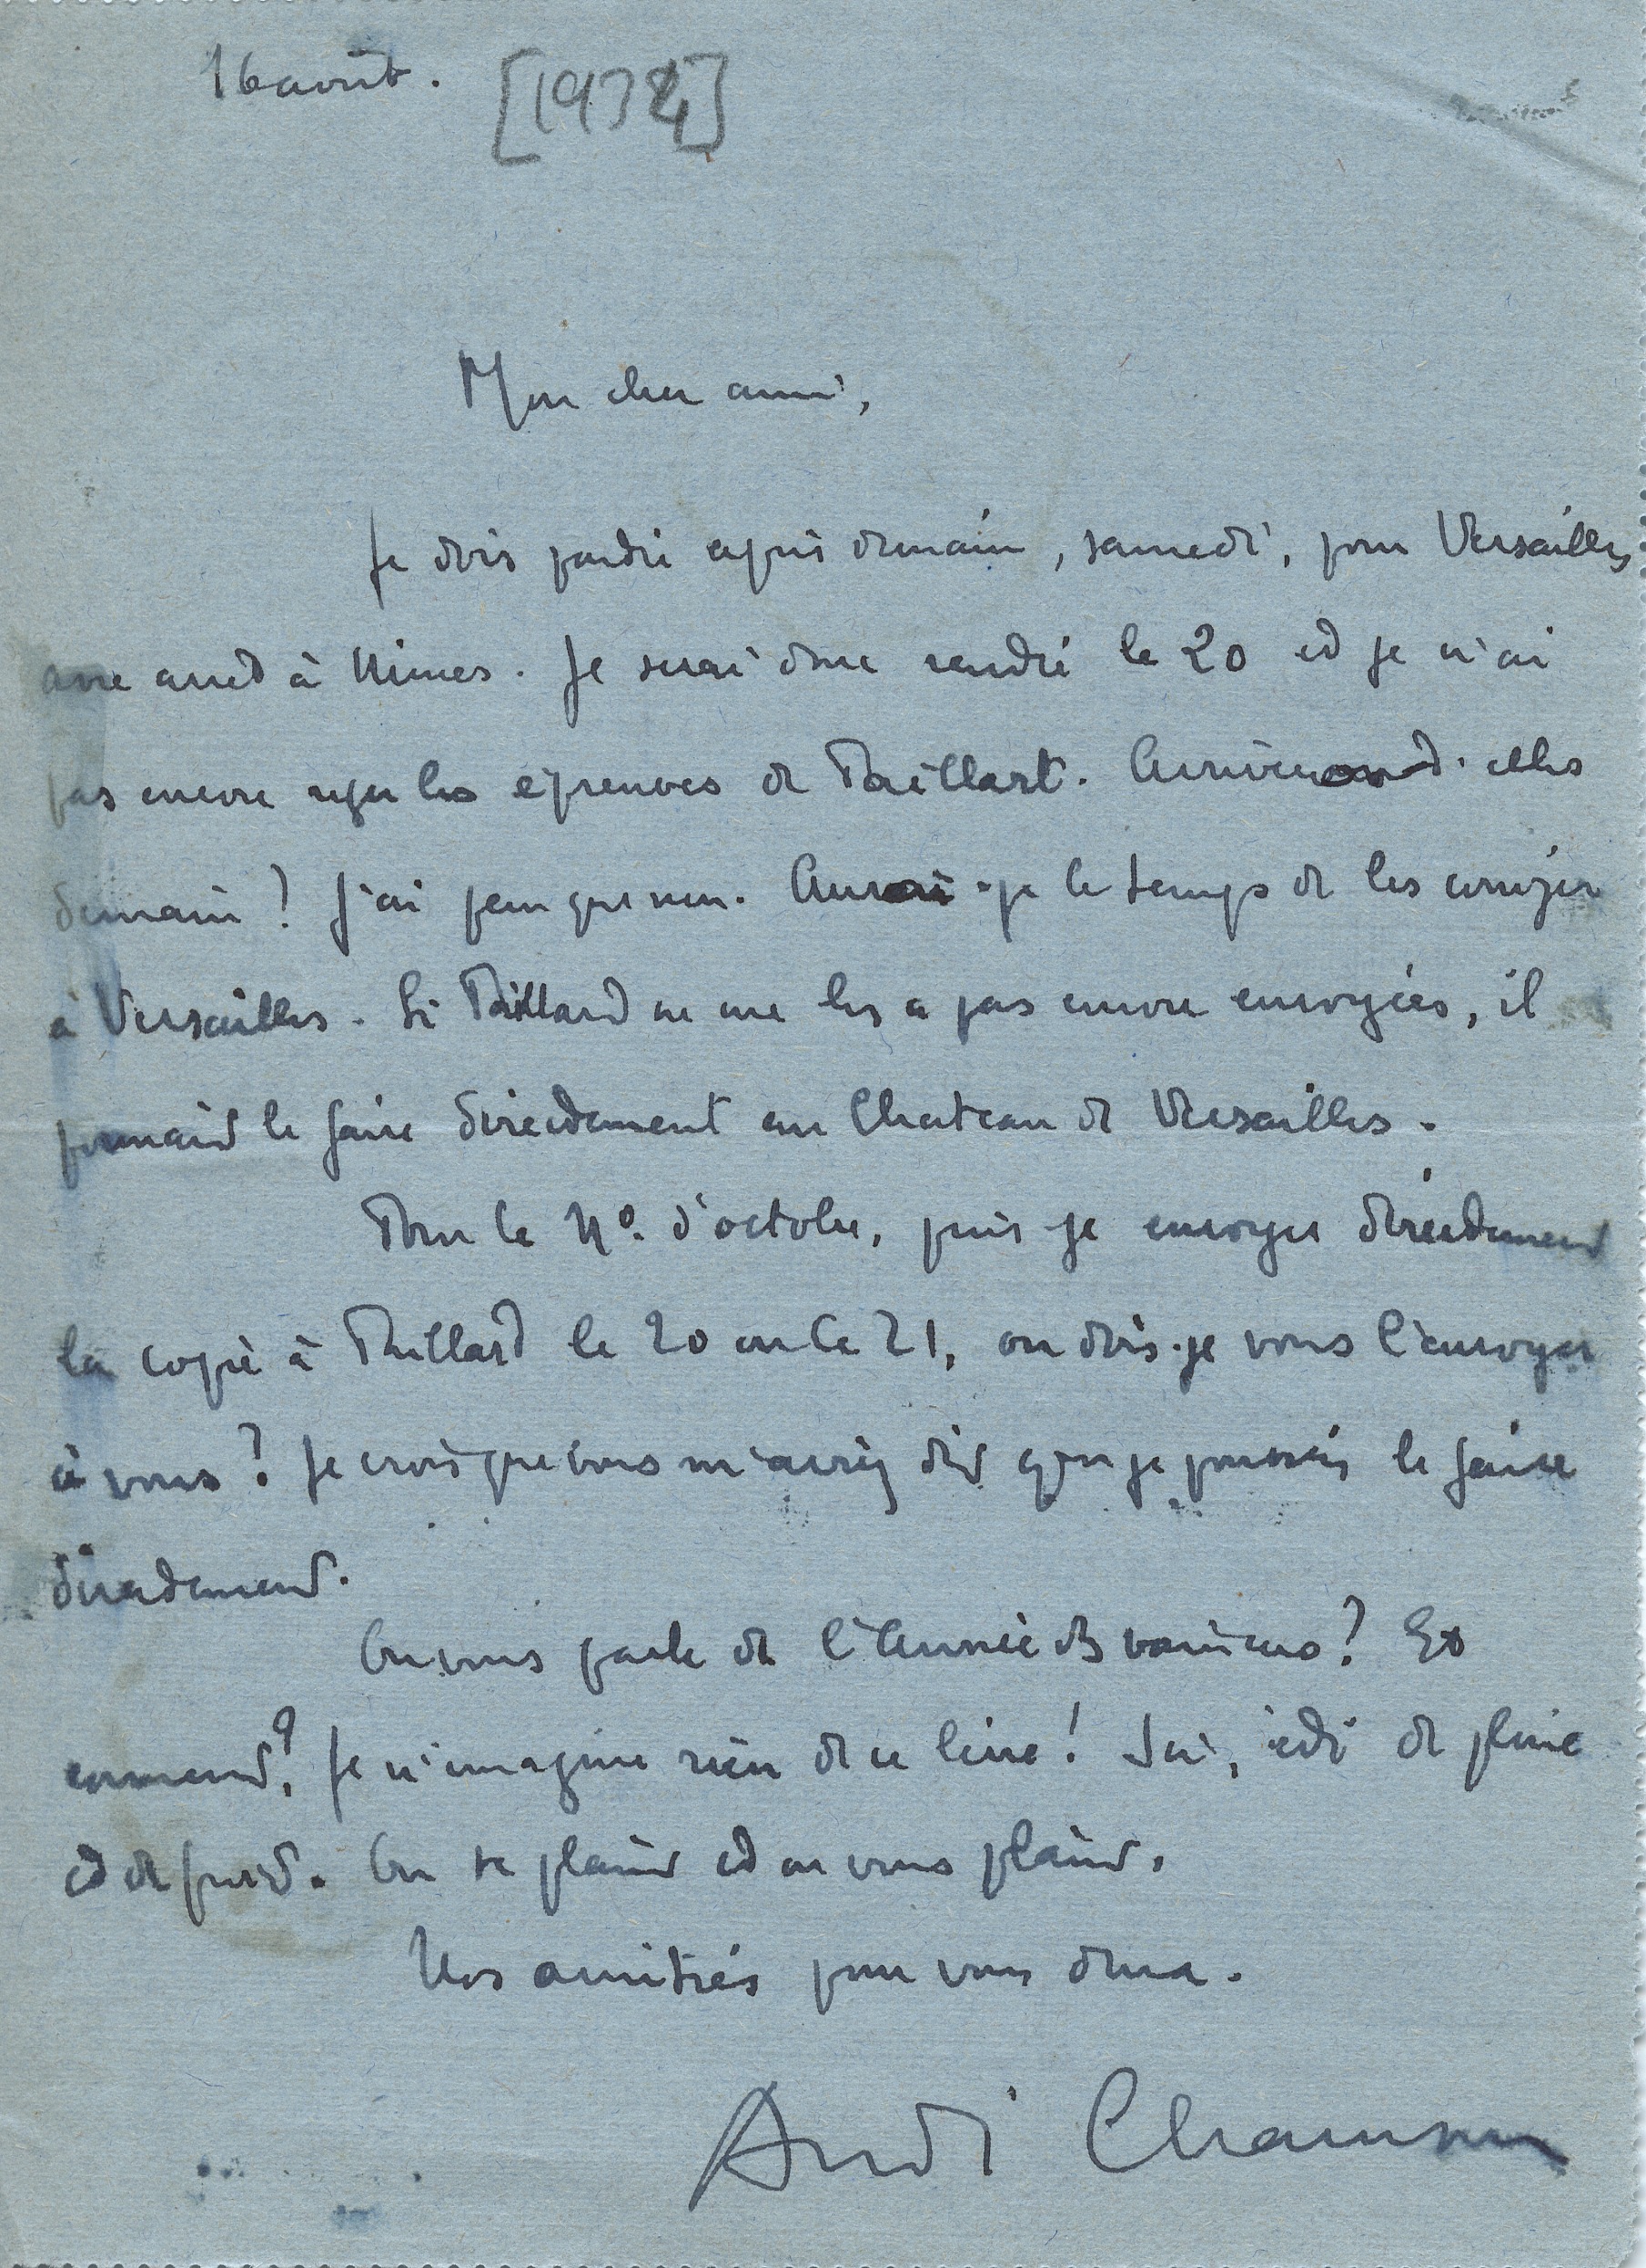 16 août. [1934]
Mon cher ami,
Je dois partir après demain, samedi, pour Versailles
avec arrêt à Nîmes. Je serai donc rendu le 20 et je n'ai
pas encore reçu les épreuves de Paillart. Arriveront-elles
demain ? J'ai peur que non. Aurai-je le temps de les corriger
à Versailles. Si Paillard ne me les a pas encore envoyées, il
pourrait le faire directement au Chateau de Versailles.
Pour le N° d'octobre, puis-je envoyer directement
la copie à Paillard le 20 ou le 21, ou dois-je vous l'envoyer
à vous ? Je crois que vous m'aviez dit que je pouvais le faire
directement.
On vous parle de l'Année des vaincus ? Et
comment ? Je n'imagine rien de ce livre ! Ici, été de pluie
et de froid. On se plaint et on vous plaint.
Nos amitiés pour vous deux.
André Chamson